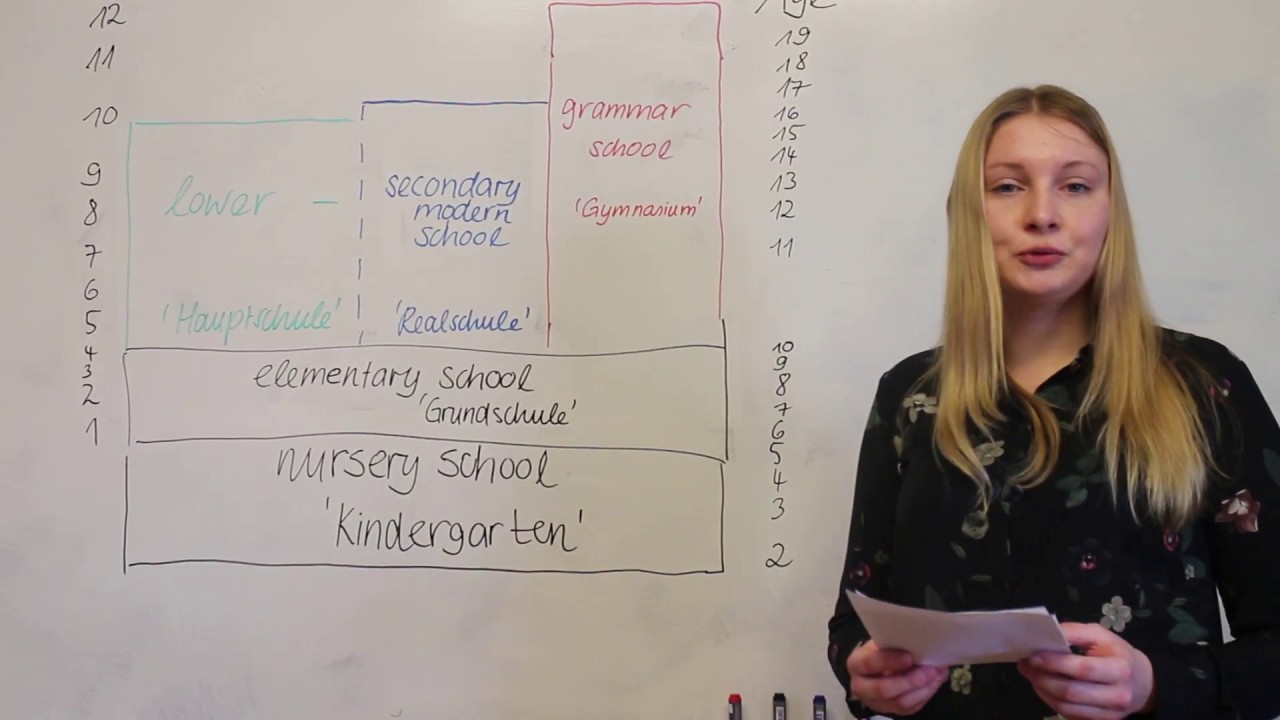 12
11
10
9
8
7
6
5
4
3
2
1
lower –
'Hauptschule'
secondary
modern
school
'Realschule'
grammar
school
'Gymnasium'
elementary school
'Grundschule'
nursery school
'Kindergarten'
Age
19
18
17
16
15
14
13
12
11
10
9
8
7
6
5
4
3
2